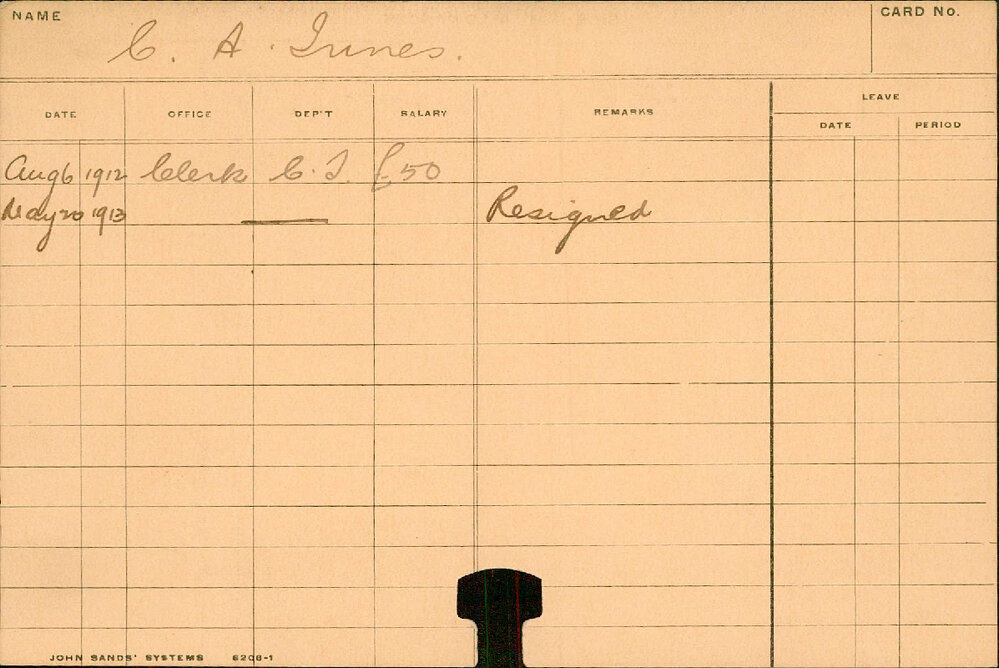 NAME C. A. Innes. CARD No.
DATE OFFICE DEP'T SALARY REMARKS LEAVE
DATE PERIOD
Aug 6 1912 Clerk C. T. £50
May 20 1913 — Resigned
JOHN SANDS' SYSTEMS 6208-1